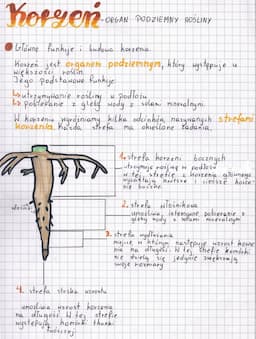 Korzeń - ORGAN PODZIEMNY ROŚLINY
Główne funkcje i budowa korzenia.
Korzeń jest organem podziemnym, który występuje u
większości roślin.
Jego podstawowe funkcje:
utrzymywanie rośliny w podłożu
pobieranie z gleby wody z solami mineralnymi.
W korzeniu wyróżniamy kilka odcinków, nazywanych strefami
korzenia. Każda strefa ma określone zadania.
1. strefa korzeni bocznych
utrzymuje roślinę w podłożu
w tej strefie z korzenia głównego
wyrastają krótsze i cieńsze korze
nie boczne.
2. strefa włośnikowa
umożliwia intensywne pobieranie z
gleby wody z solami mineralnymi
włośniki
3. strefa wydłużania
miejsce w którym następuje wzrost korze
nia na długość. W tej strefie komórki
nie dzielą się jedynie zwiększają
swoje rozmiary
4. strefa stożka wzrostu
umożliwia wzrost korzenia
na długość. W tej strefie
występują komórki tkanki
twórczej